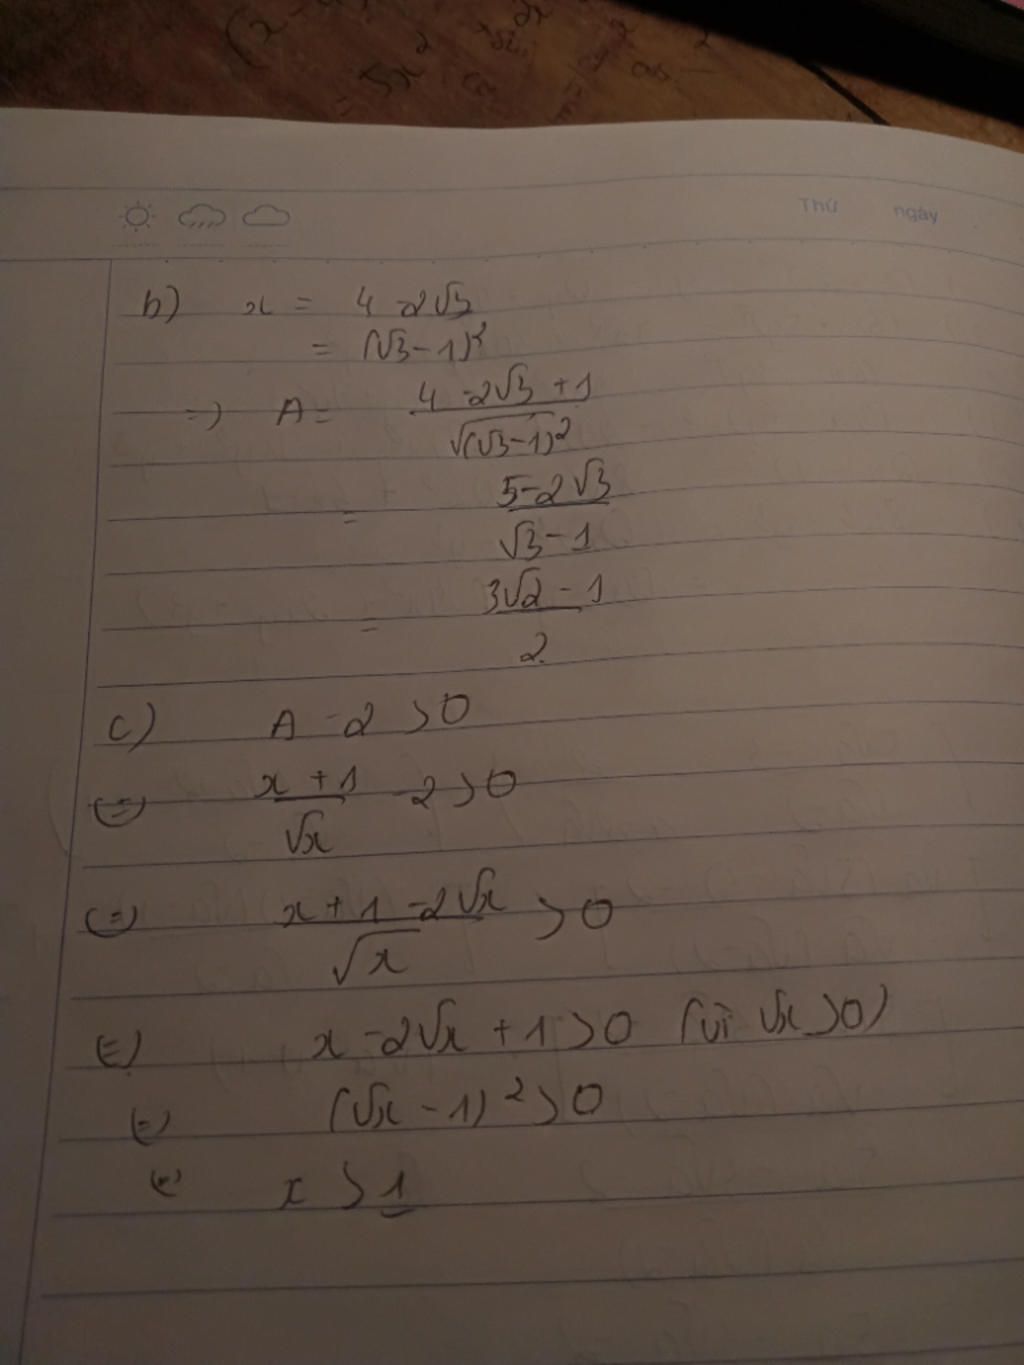 Thứ ngày
b) x = 4 - 2√3
= (√3 - 1)²
=) A = (4 - 2√3 + 1) / √(√3 - 1)²
= (5 - 2√3) / (√3 - 1)
= (3√2 - 1) / 2
c) A - 2 > 0
(=) (x + 1) / √x - 2 > 0
(=) (x + 1 - 2√x) / √x > 0
(=) x - 2√x + 1 > 0 (vì √x > 0)
(=) (√x - 1)² > 0
(=) x > 1